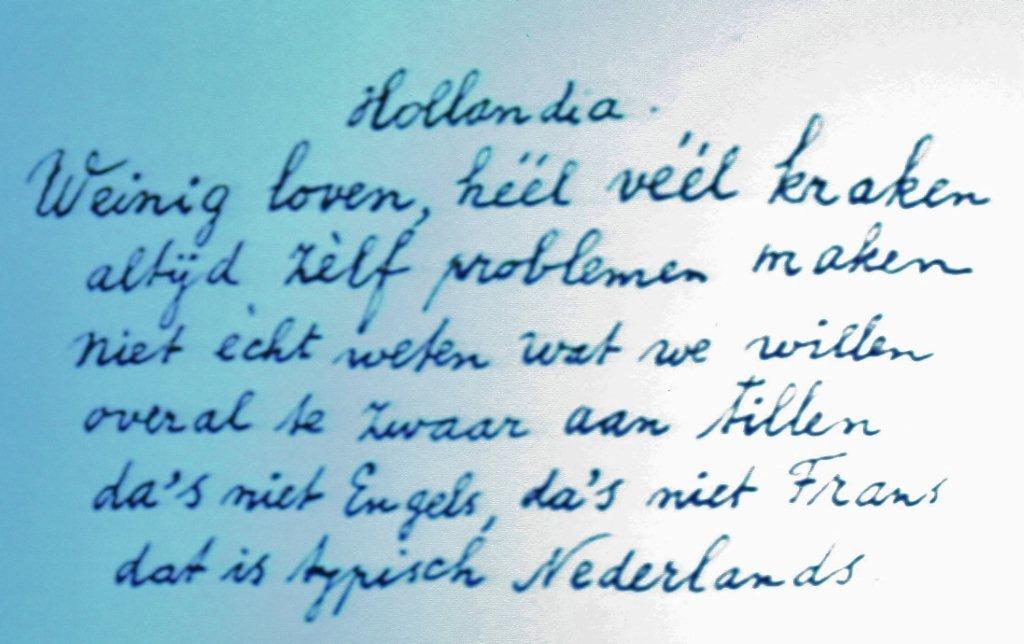 Hollandia.
Weinig loven, hëël véél kraken
altijd zèlf problemen maken
niet ècht weten wat we willen
overal te zwaar aan tillen
da's niet Engels, da's niet Frans
dat is typisch Nederlands